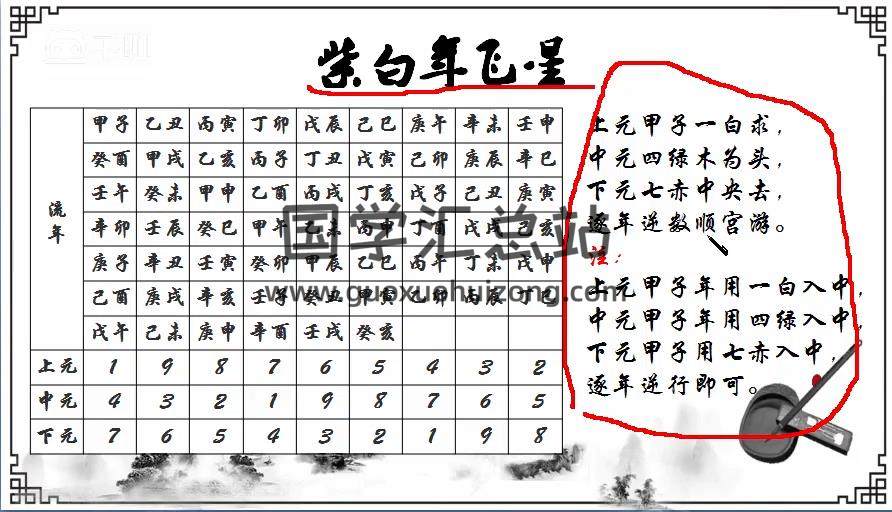 紫白年飞星
流年
甲子 乙丑 丙寅 丁卯 戊辰 己巳 庚午 辛未 壬申
癸酉 甲戌 乙亥 丙子 丁丑 戊寅 己卯 庚辰 辛巳
壬午 癸未 甲申 乙酉 丙戌 丁亥 戊子 己丑 庚寅
辛卯 壬辰 癸巳 甲午 乙未 丙申 丁酉 戊戌 己亥
庚子 辛丑 壬寅 癸卯 甲辰 乙巳 丙午 丁未 戊申
己酉 庚戌 辛亥 壬子 癸丑 甲寅 乙卯 丙辰 丁巳
戊午 己未 庚申 辛酉 壬戌 癸亥
上元 1 9 8 7 6 5 4 3 2
中元 4 3 2 1 9 8 7 6 5
下元 7 6 5 4 3 2 1 9 8
上元甲子一白求，
中元四绿木为头，
下元七赤中央去，
逐年逆数顺宫游。
注：
上元甲子年用一白入中，
中元甲子年用四绿入中，
下元甲子用七赤入中，
逐年逆行即可。
国学汇总站
www.guoxuehuizong.com